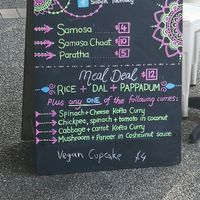 Samosa $4
Samosa Chaat $10
Paratha $5
Meal Deal $12
RICE + DAL + PAPPADUM
Plus any ONE of the following curries:
Spinach + Cheese Kofta Curry
Chickpea, spinach + tomato in coconut
Cabbage + carrot Kofta Curry
Mushroom + Paneer in Cashewnut sauce
Vegan Cupcake $4